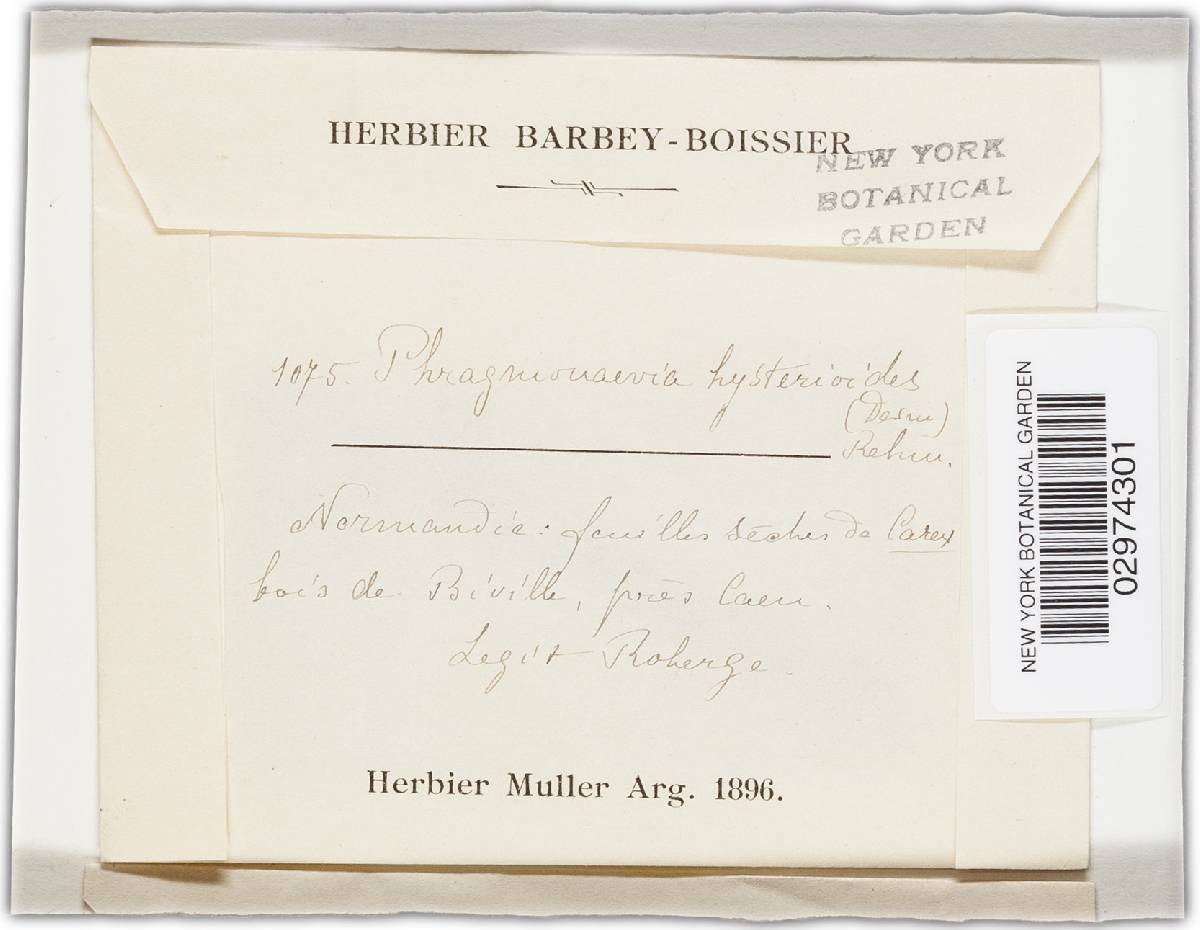 HERBIER BARBEY-BOISSIER
NEW YORK
BOTANICAL
GARDEN
1075. Phragmonaevia hysterioides
(Desm)
Rehm.
Normandie: feuilles sèches de Carex
bois de Biville, près Caen.
Legit Roberge.
Herbier Muller Arg. 1896.
NEW YORK BOTANICAL GARDEN
02974301